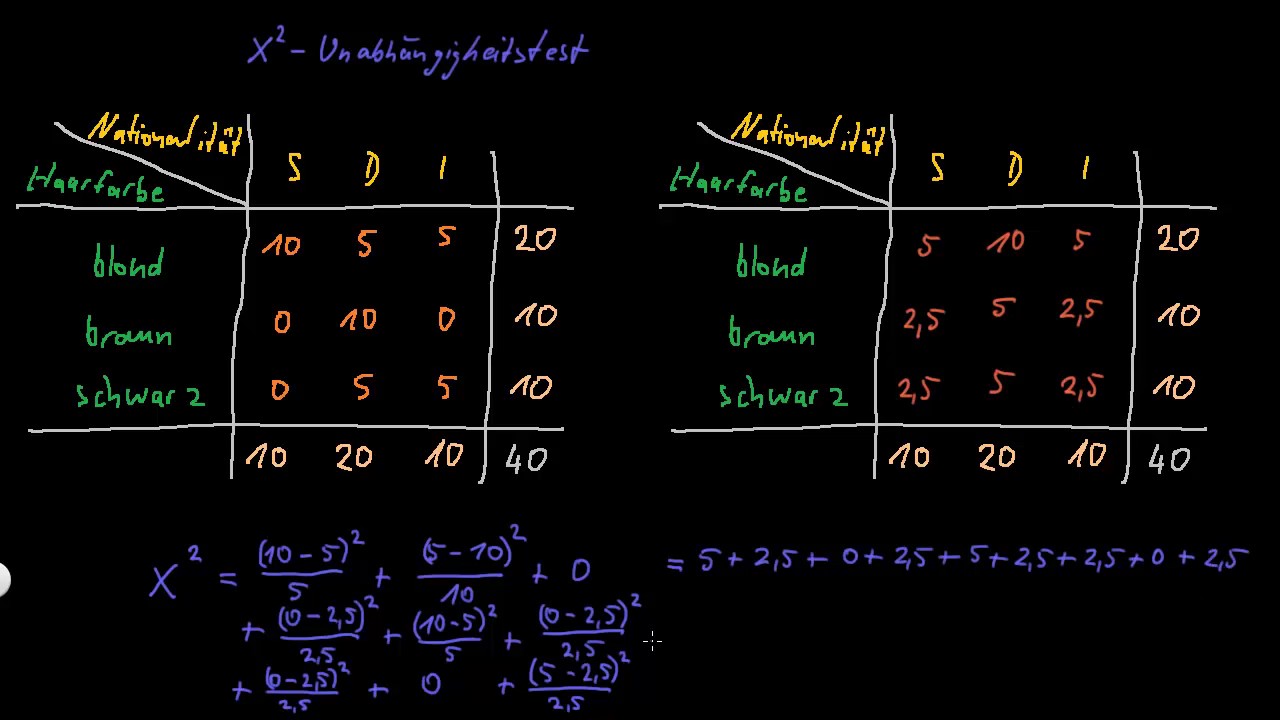 X² - Unabhängigkeitstest
Nationalität
Haarfarbe S D I
blond 10 5 5 20
braun 0 10 0 10
schwarz 0 5 5 10
10 20 10 40
Nationalität
Haarfarbe S D I
blond 5 10 5 20
braun 2,5 5 2,5 10
schwarz 2,5 5 2,5 10
10 20 10 40
X² = (10 - 5)²/5 + (5 - 10)²/10 + 0
+ (0 - 2,5)²/2,5 + (10 - 5)²/5 + (0 - 2,5)²/2,5
+ (0 - 2,5)²/2,5 + 0 + (5 - 2,5)²/2,5
= 5 + 2,5 + 0 + 2,5 + 5 + 2,5 + 2,5 + 0 + 2,5